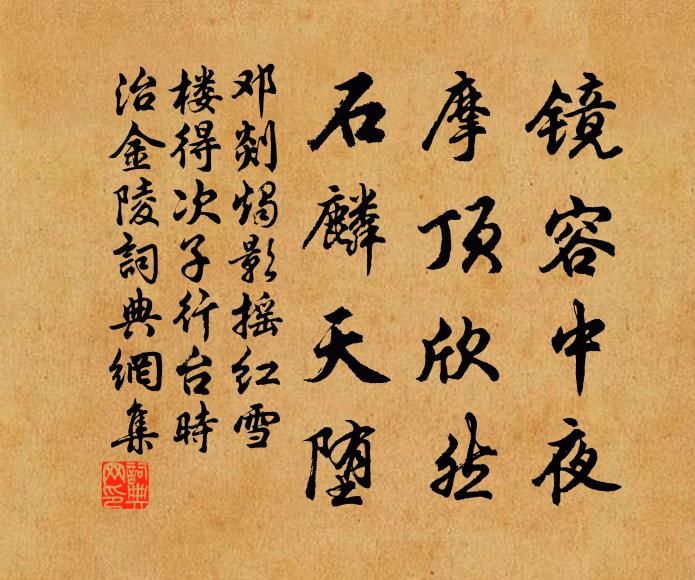 镜容中夜
摩顶欣然
石麟天堕
邓剡烛影摇红雪
楼得次子行台時
治金陵詞典網集
詞典網印